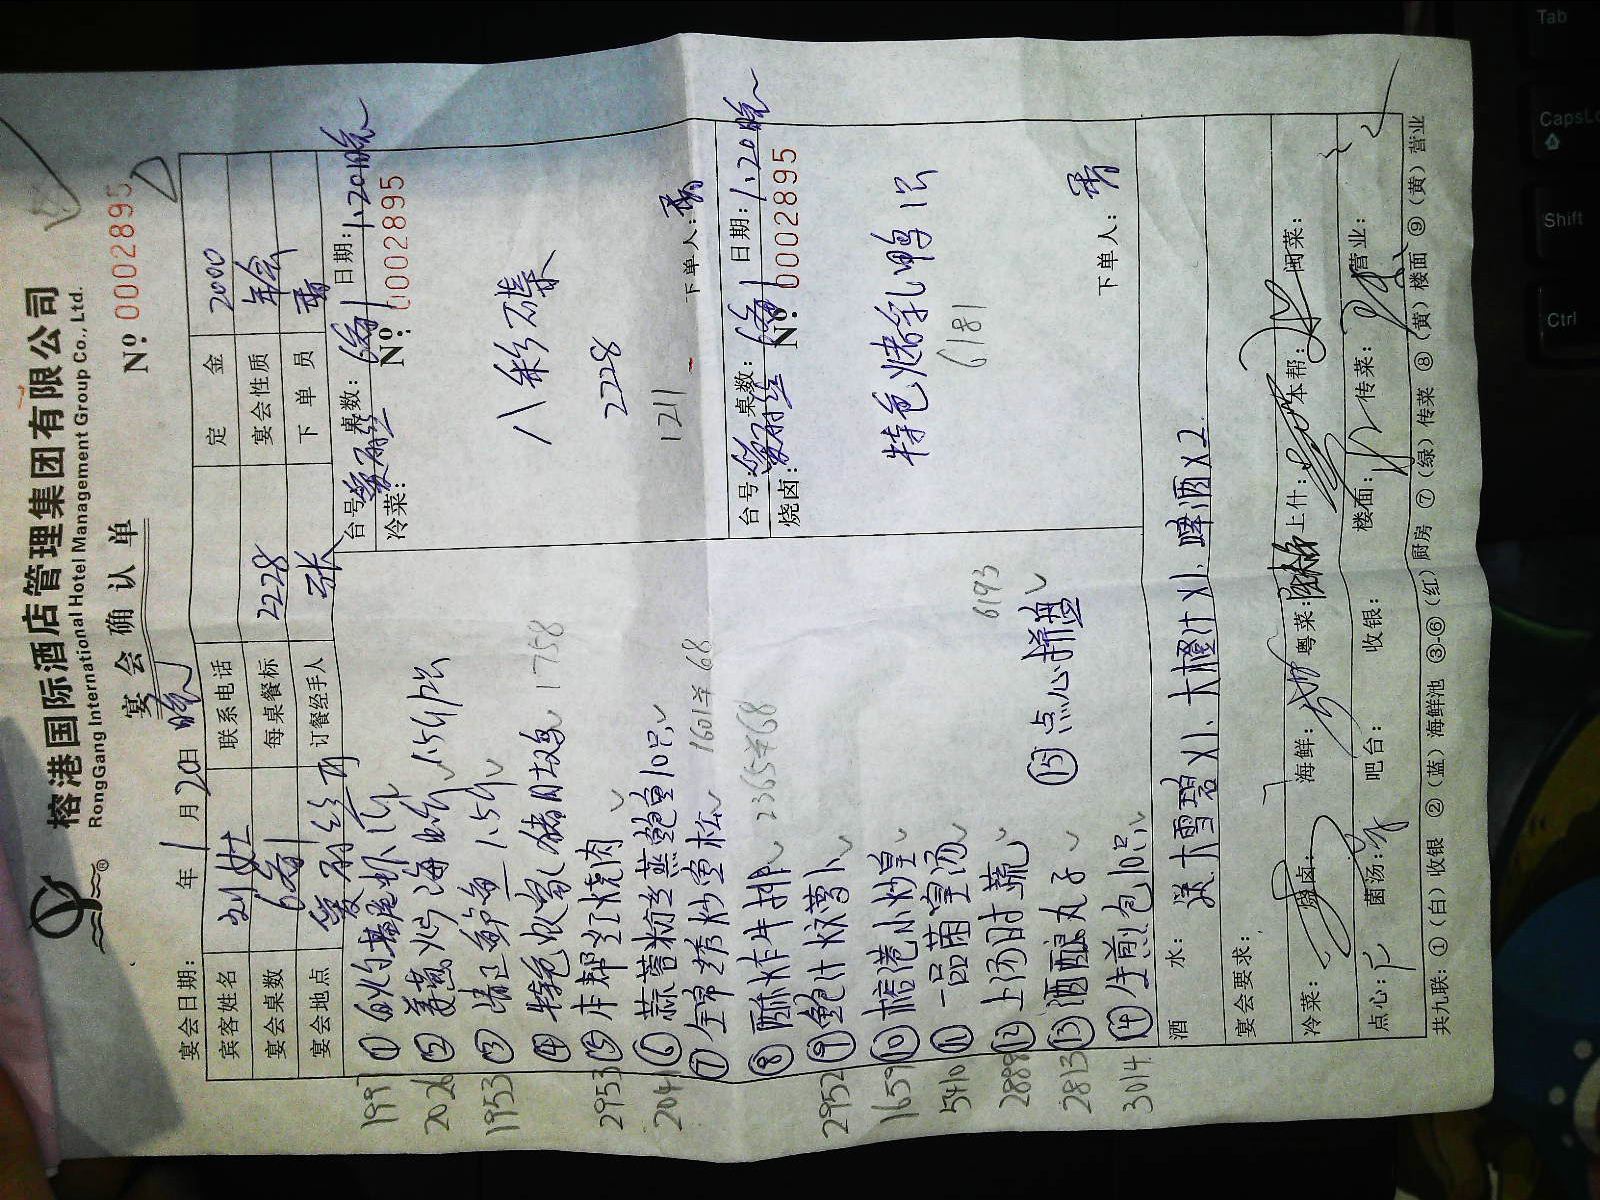 榕港国际酒店管理集团有限公司
RongGang International Hotel Management Group Co., Ltd.
宴会确认单
Nº 0002895
宴会日期： 年 1 月 20 日 晚
宾客姓名 刘女士 联系电话 定金 2000
宴会桌数 每桌餐标 2228 宴会性质 年会
宴会地点 订餐经手人 张 下单员
1997 ① 白灼基尾虾1斤
2026 ② 海
1953 ③ 清正鲈鱼 1.5斤
④ 特色 猪肚鸡 1758
2953 ⑤ 本帮红烧肉
2041 ⑥ 蒜蓉粉丝蒸鲍鱼10只
⑦ 全家绣炒雪松 1601 68
⑧ 酥炸牛排 2365 68
2952 ⑨ 鲍汁炆萝卜
1659 ⑩ 榕港小炒皇
5410 ⑪ 一品菌皇汤
2888 ⑫ 上汤时蔬
2813 ⑬ 酒酿丸子
3014 ⑭ 生煎包10只
⑮ 点心拼盘 6193
台号： 桌数： 日期：1.20晚
冷菜： Nº: 0002895
八彩碟
2228
1211
下单人：
台号： 桌数： 日期：1.20晚
烧卤： Nº: 0002895
特色烤乳鸭1只
6181
下单人：
酒水： 大雪碧x1、大橙汁x1、啤酒x2
宴会要求：
冷菜： 烧卤： 海鲜： 粤菜： 上什： 本帮： 闽菜：
点心： 菌汤： 吧台： 收银： 楼面： 传菜： 营业：
共九联：①（白）收银 ②（蓝）海鲜池 ③-⑥（红）厨房 ⑦（绿）传菜 ⑧（黄）楼面 ⑨（黄）营业